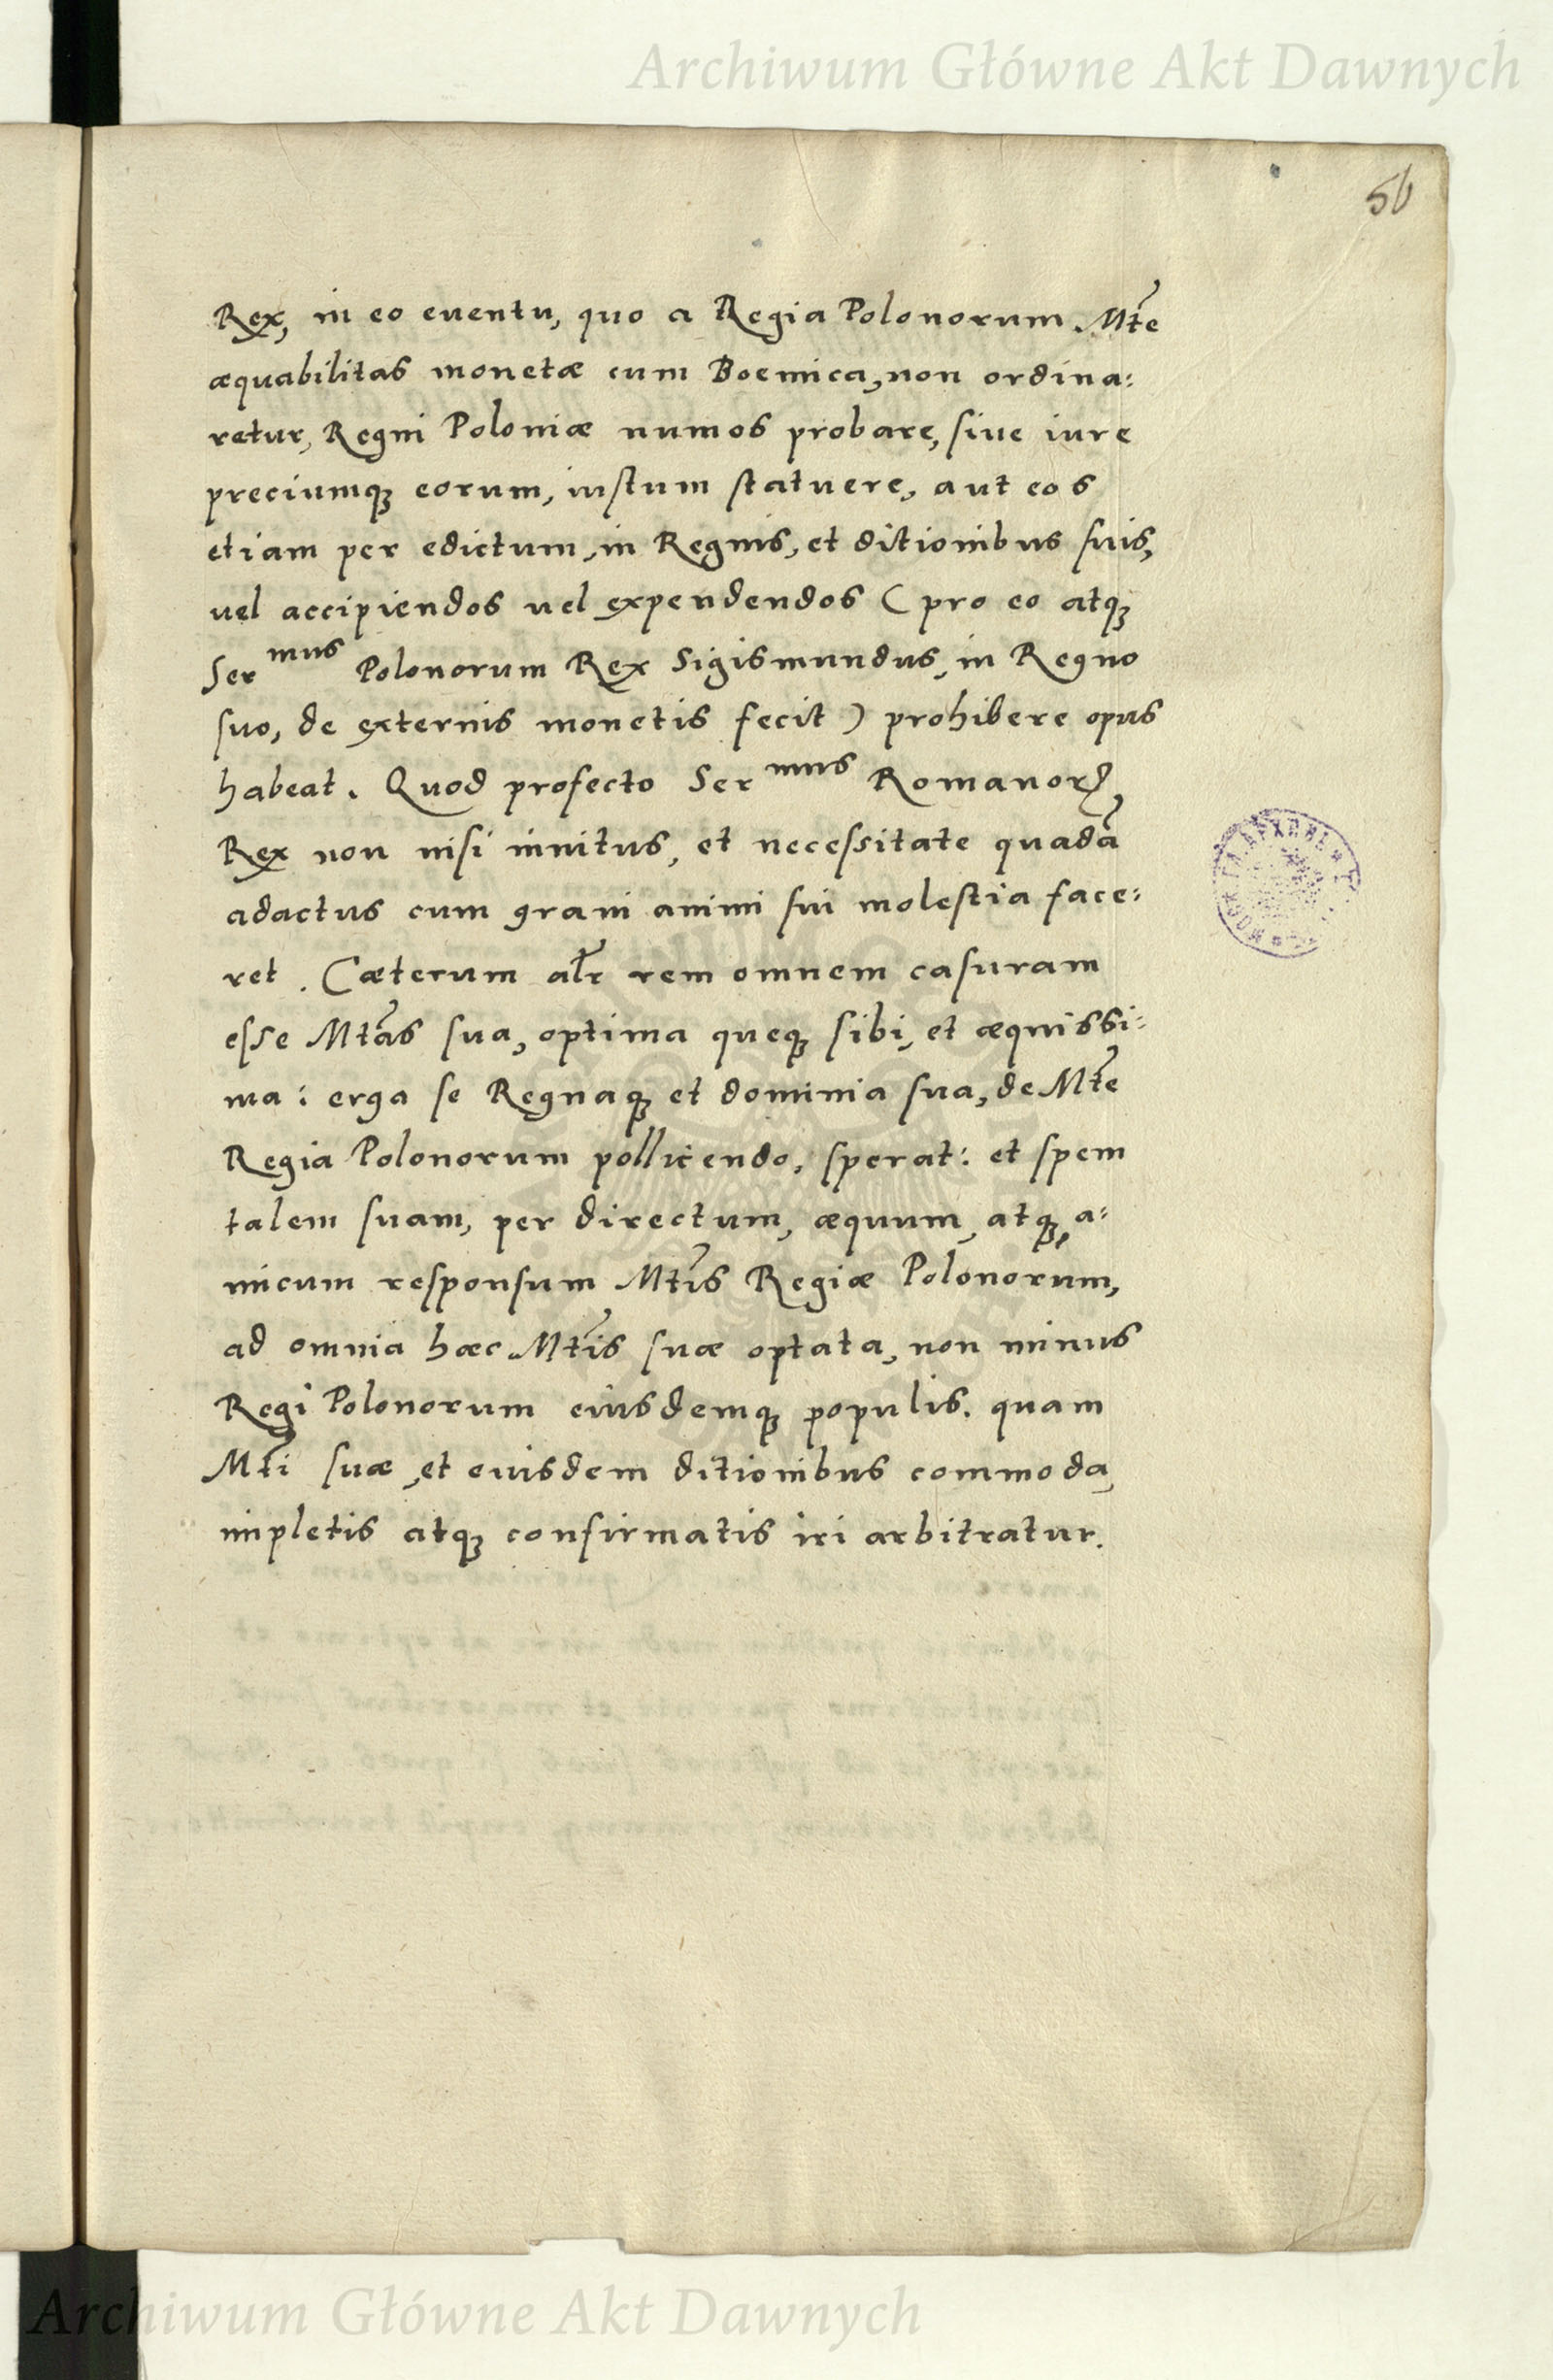 Archiwum Główne Akt Dawnych
56
Rex, in eo euentu, quo a Regia Polonorum Mt̃e
æquabilitas monetæ cum Boemica, non ordina:
retur, Regni Poloniæ numos probare, siue iure
preciumq́ꝫ eorum, iustum statuere, aut eos
etiam per edictum, in Regnis, et ditionibus suis,
uel accipiendos uel expendendos ( pro eo atqꝫ
Ser mus Polonorum Rex Sigismundus, in Regno
suo, de externis monetis fecit ) prohibere opus
habeat. Quod profecto Ser mus Romanorꝝ
Rex non nisi inuitus, et necessitate quadã
adactus cum graui animi sui molestia face:
ret. Cæterum alr̃ rem omnem casuram
esse Mtãs sua, optima queqꝫ sibi, et æquissi:
ma: erga se Regnaqꝫ et dominia sua, de Mt̃e
Regia Polonorum pollicendo, sperat: et spem
talem suam, per directum, æquum, atqꝫ, a:
micum responsum Mt̃is Regiæ Polonorum,
ad omnia hæc Mt̃is suæ optata, non minus
Regi Polonorum eiusdemqꝫ populis. quam
Mt̃i suæ, et eiusdem ditionibus commoda,
impletis atqꝫ confirmatis iri arbitratur.
Archiwum Główne Akt Dawnych